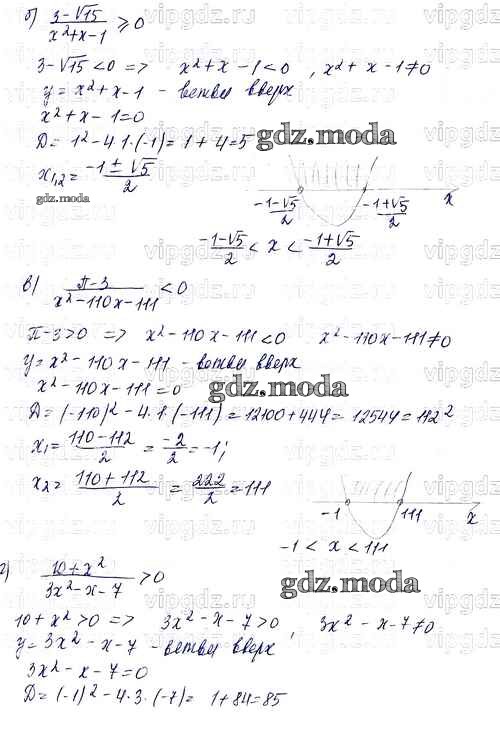 б) (3-√15)/(x²+x-1) ⩾ 0
3-√15 < 0 => x²+x-1<0, x²+x-1≠0
y = x²+x-1 - ветви вверх
x²+x-1=0
D = 1²-4·1·(-1) = 1+4=5
gdz.moda
x₁,₂ = (-1±√5)/2
gdz.moda
(-1-√5)/2 (-1+√5)/2 x
(-1-√5)/2 < x < (-1+√5)/2
в) (π-3)/(x²-110x-111) < 0
π-3>0 => x²-110x-111<0 x²-110x-111≠0
y = x²-110x-111 - ветви вверх
x²-110x-111=0
gdz.moda
D = (-110)²-4·1·(-111) = 12100+444 = 12544 = 112²
x₁ = (110-112)/2 = -2/2 = -1;
x₂ = (110+112)/2 = 222/2 = 111
-1 111 x
-1 < x < 111
г) (10+x²)/(3x²-x-7) > 0
gdz.moda
10+x²>0 => 3x²-x-7>0, 3x²-x-7≠0
y = 3x²-x-7 - ветви вверх
3x²-x-7=0
D = (-1)²-4·3·(-7) = 1+84=85
vipgdz.ru